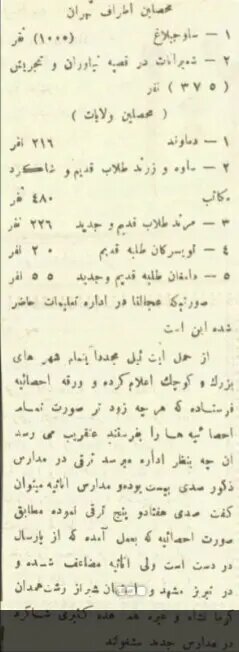 محصلین اطراف تهران
۱ — ساوجبلاغ (۱۰۰۰) نفر
۲ — شمیرانات در قصبه نیاوران و تجریش
(۳۷۵) نفر
(محصلین ولایات)
۱ — دماوند ۲۱۶ نفر
۲ — ساوه و زرند طلاب قدیم و شاگرد
مکاتب ۴۸۰ نفر
۳ — مرند طلاب قدیم و جدید ۲۲۶ نفر
۴ — تویسرکان طلبه قدیم ۲۰ نفر
۵ — دامغان طلبه قدیم وجدید ۵۵ نفر
صورتیکه عجالتا در اداره تعلیمات حاضر
شده این است
از حمل ایت ئیل مجددا بتمام شهر های
بزرك و كوچك اعلام کرده و ورقه احصائیه
فرستاده که هر چه زود تر صورت تمام
احصائیه ها را بفرستند عنقریب می رسد
ان چه بنظر اداره میرسد ترقی در مدارس
ذکور صدی بیست بوده و مدارس اناثیه میتوان
گفت صدی هفتاد و پنج ترقی نموده مطابق
صورت احصائیه که بعمل آمده که از پارسال
در دست است ولی اناثیه مضاعف شده و
در تبریز مشهد و شیراز رشت همدان
کرمانشاه و غیره هم عده کثیری شاگرد
در مدارس جدید مشغولند